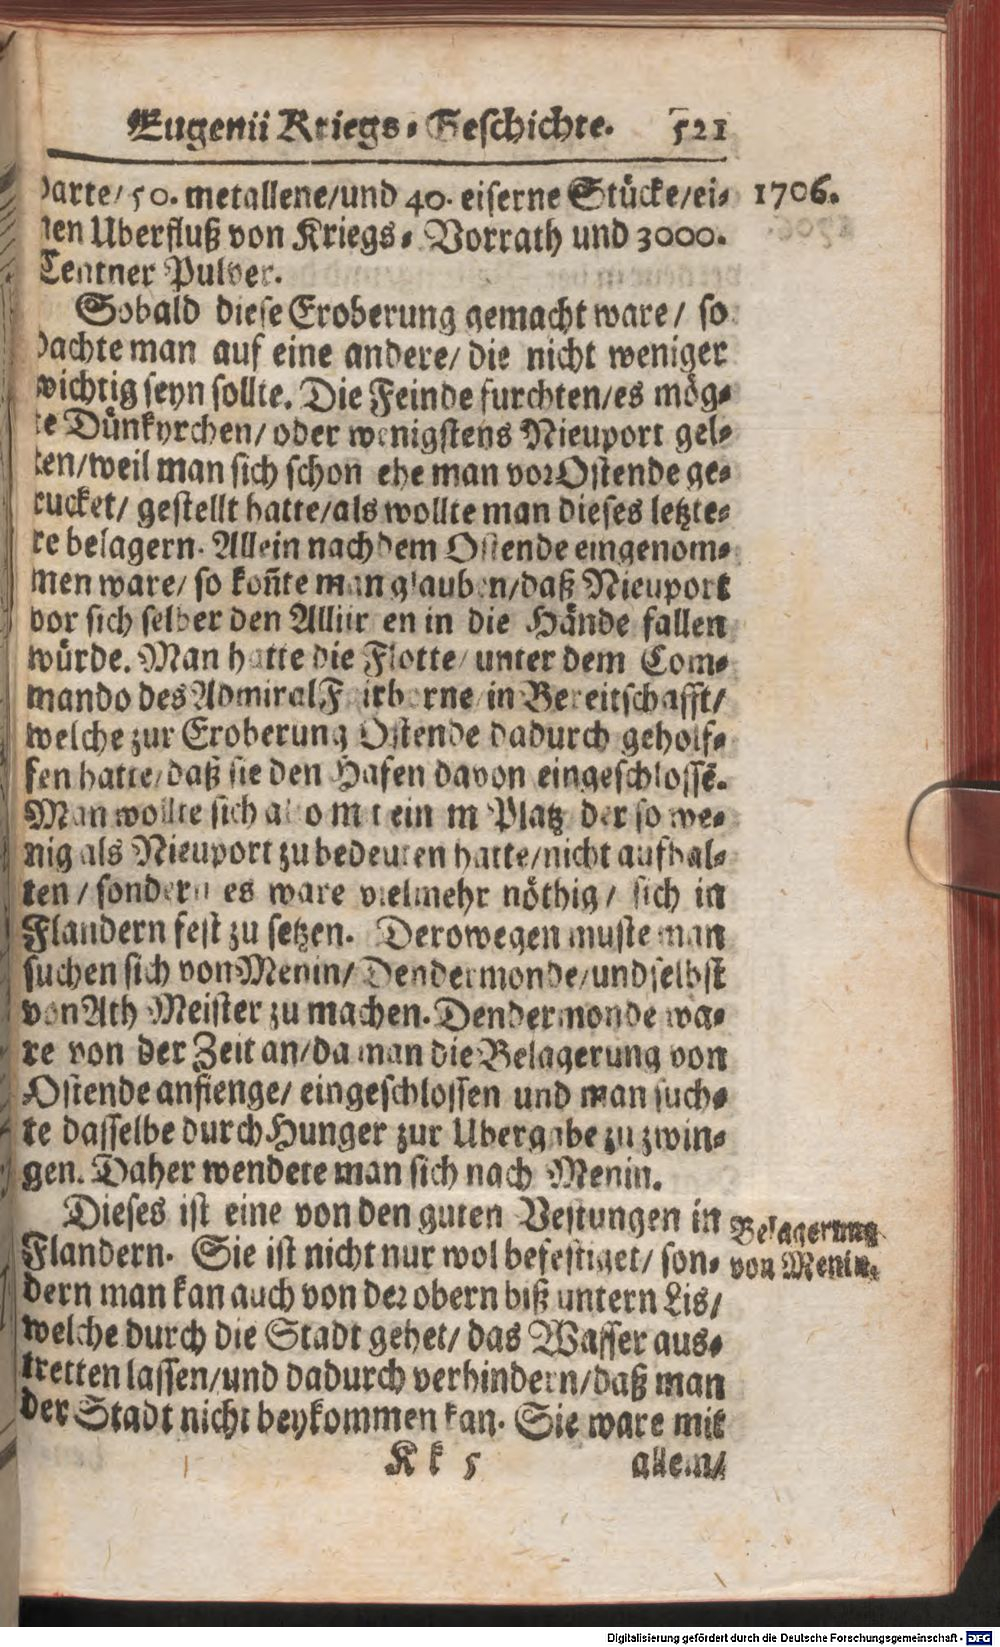 Eugenii Kriegs-Geschichte. 521
parte/ 50. metallene/und 40. eiserne Stücke/ei- 1706.
nen Uberfluß von Kriegs-Vorrath und 3000.
Centner Pulver.
Sobald diese Eroberung gemacht ware/ so
dachte man auf eine andere/ die nicht weniger
wichtig seyn sollte. Die Feinde furchten/es mög-
te Dünkyrchen/ oder wenigstens Nieuport gel-
ten/weil man sich schon ehe man vor Ostende ge-
rucket/ gestellt hatte/als wollte man dieses letzte-
re belagern. Allein nachdem Ostende eingenom-
men ware/ so koñte man glauben/daß Nieuport
vor sich selber den Alliirten in die Hände fallen
würde. Man hatte die Flotte/ unter dem Com-
mando des Admiral Fairborne/in Bereitschafft/
welche zur Eroberung Ostende dadurch geholf-
fen hatte/daß sie den Hafen davon eingeschlossẽ.
Man wollte sich also mit einem Platz der so we-
nig als Nieuport zu bedeuten hatte/nicht aufhal-
ten/ sondern es ware vielmehr nöthig/ sich in
Flandern fest zu setzen. Derowegen muste man
suchen sich von Menin/ Dendermonde/und selbst
von Ath Meister zu machen. Dendermonde wa-
re von der Zeit an/da man die Belagerung von
Ostende anfienge/ eingeschlossen und man such-
te dasselbe durch Hunger zur Ubergabe zu zwin-
gen. Daher wendete man sich nach Menin.
Dieses ist eine von den guten Vestungen in
Flandern. Sie ist nicht nur wol befestiget/ son-
dern man kan auch von der obern biß untern Lis/
welche durch die Stadt gehet/ das Wasser aus-
tretten lassen/und dadurch verhindern/daß man
der Stadt nicht beykommen kan. Sie ware mit
Belagerung
von Menin.
Kk 5 allem/
Digitalisierung gefördert durch die Deutsche Forschungsgemeinschaft - DFG